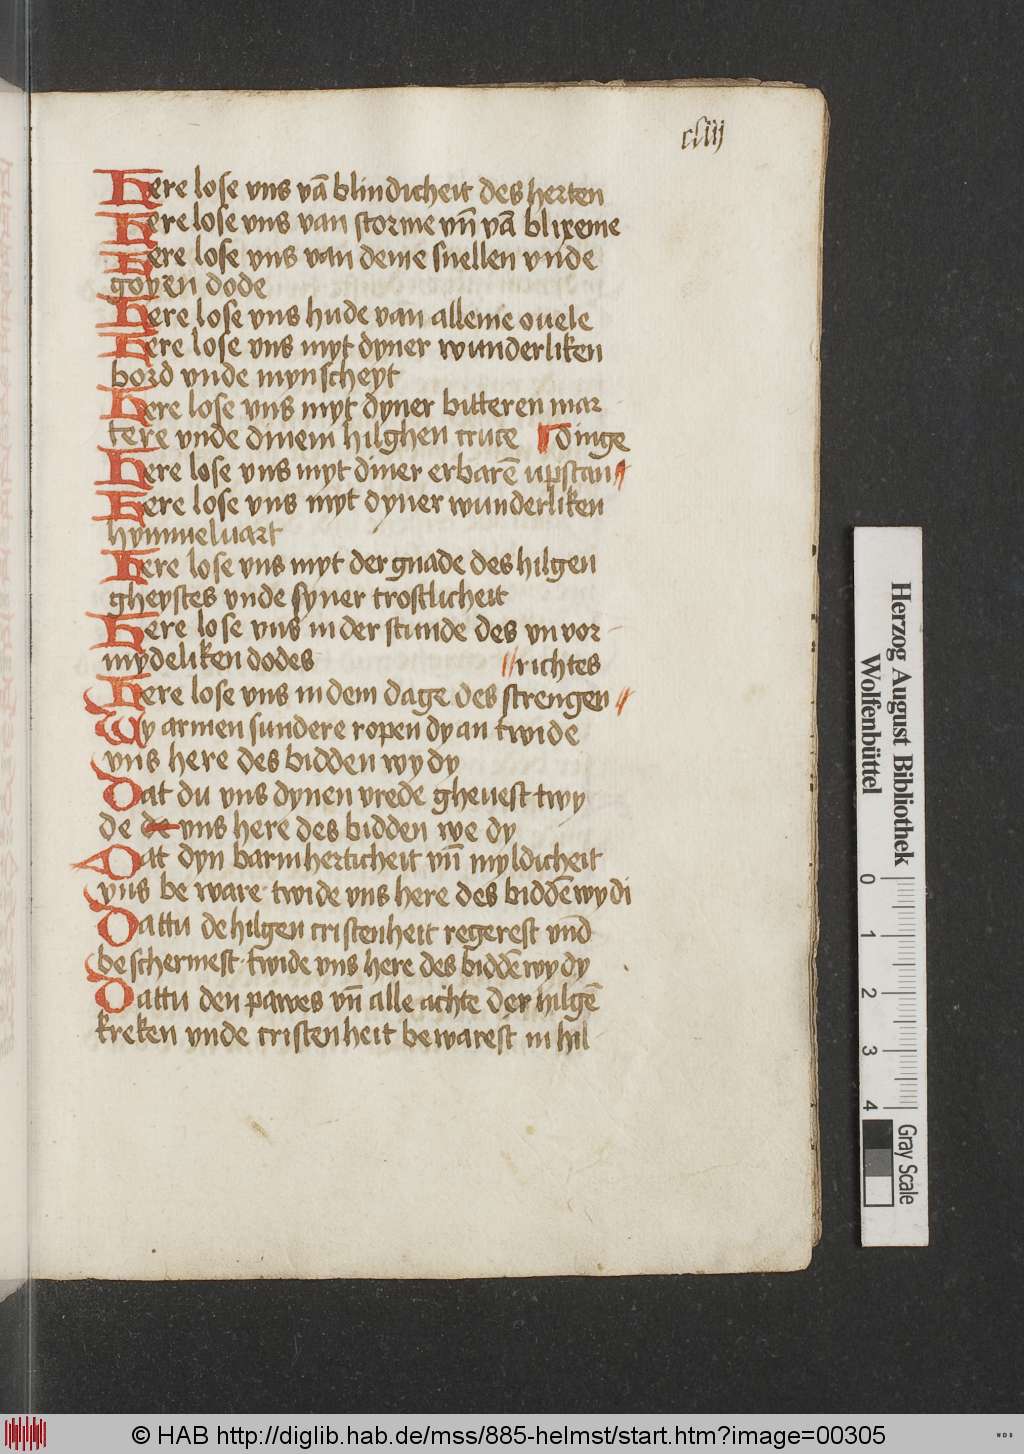 cliij
Here lose vns vā blindicheit des herten
Here lose vns van storme vn̄ vā blixeme
Here lose vns van deme snellen vnde
goyen dode
Here lose vns hude van alleme ouele
Here lose vns myt dyner wunderliken
bord vnde mynscheyt
Here lose vns myt dyner bitteren mar
tere vnde dinem hilghen cruce dinge
Here lose vns myt diner erbarē upstan
Here lose vns myt dyner wunderliken
hymmeluart
Here lose vns myt der gnade des hilgen
gheystes vnde syner trostlicheit
Here lose vns in der stunde des vnvor
mydeliken dodes richtes
Here lose vns in dem dage des strengen
Wy armen sundere ropen dy an twide
vns here des bidden wy dy
Dat du vns dynen vrede gheuest twy
de de vns here des bidden we dy
Dat dyn barmherticheit vn̄ myldicheit
vns be ware twide vns here des biddē wy di
Dattu de hilgen cristenheit regerest vnd̄
beschermest twide vns here des biddē wy dy
Dattu den pawes vn̄ alle achte der hilgē
kreken vnde cristenheit bewarest in hil
Herzog August Bibliothek
Wolfenbüttel
0 1 2 3 4
Gray Scale
© HAB http://diglib.hab.de/mss/885-helmst/start.htm?image=00305